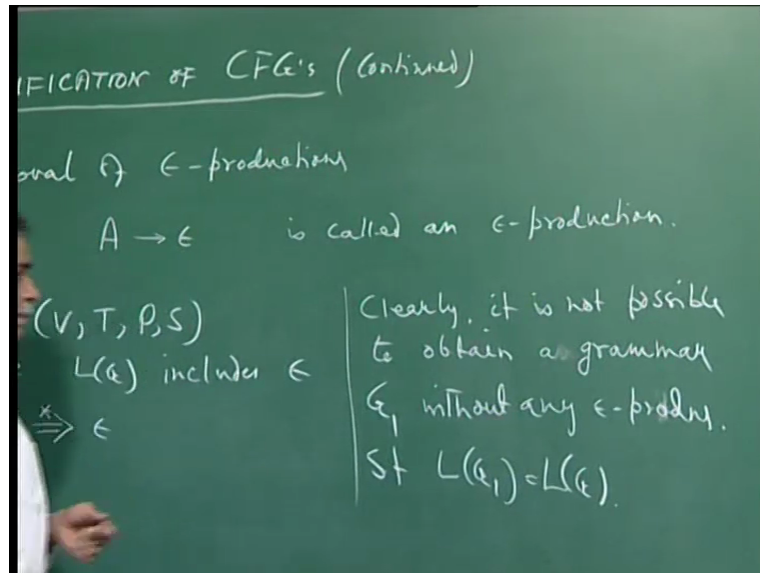 IFICATION OF CFG's (Continued)
oval of ϵ-productions
A → ϵ is called an ϵ-production.
(V, T, P, S)
L(G) includes ϵ
*⇒ ϵ
Clearly, it is not possible
to obtain a grammar
G₁ without any ϵ-produs.
St L(G₁) = L(G).